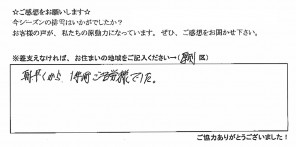 ☆ご感想をお願いします☆
今シーズンの排雪はいかがでしたか？
お客様の声が、私たちの原動力になっています。ぜひ、ご感想をお聞かせ下さい。
※差支えなければ、お住まいの地域をご記入ください→（ 区）
朝早くから 1年間ご苦労様でした。
ご協力ありがとうございました！